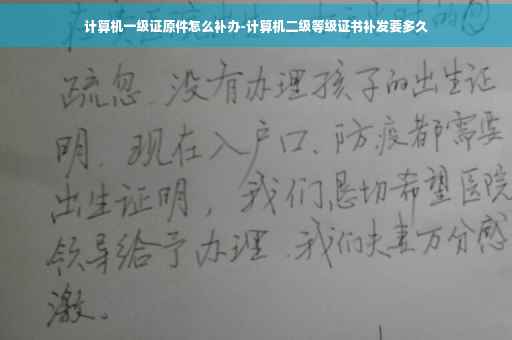 计算机一级证原件怎么补办-计算机二级等级证书补发要多久
疏忽、没有办理孩子的出生证
明、现在入户口、防疫都需要
出生证明，我们恳切希望医院
领导给予办理、我们夫妻万分感
激。